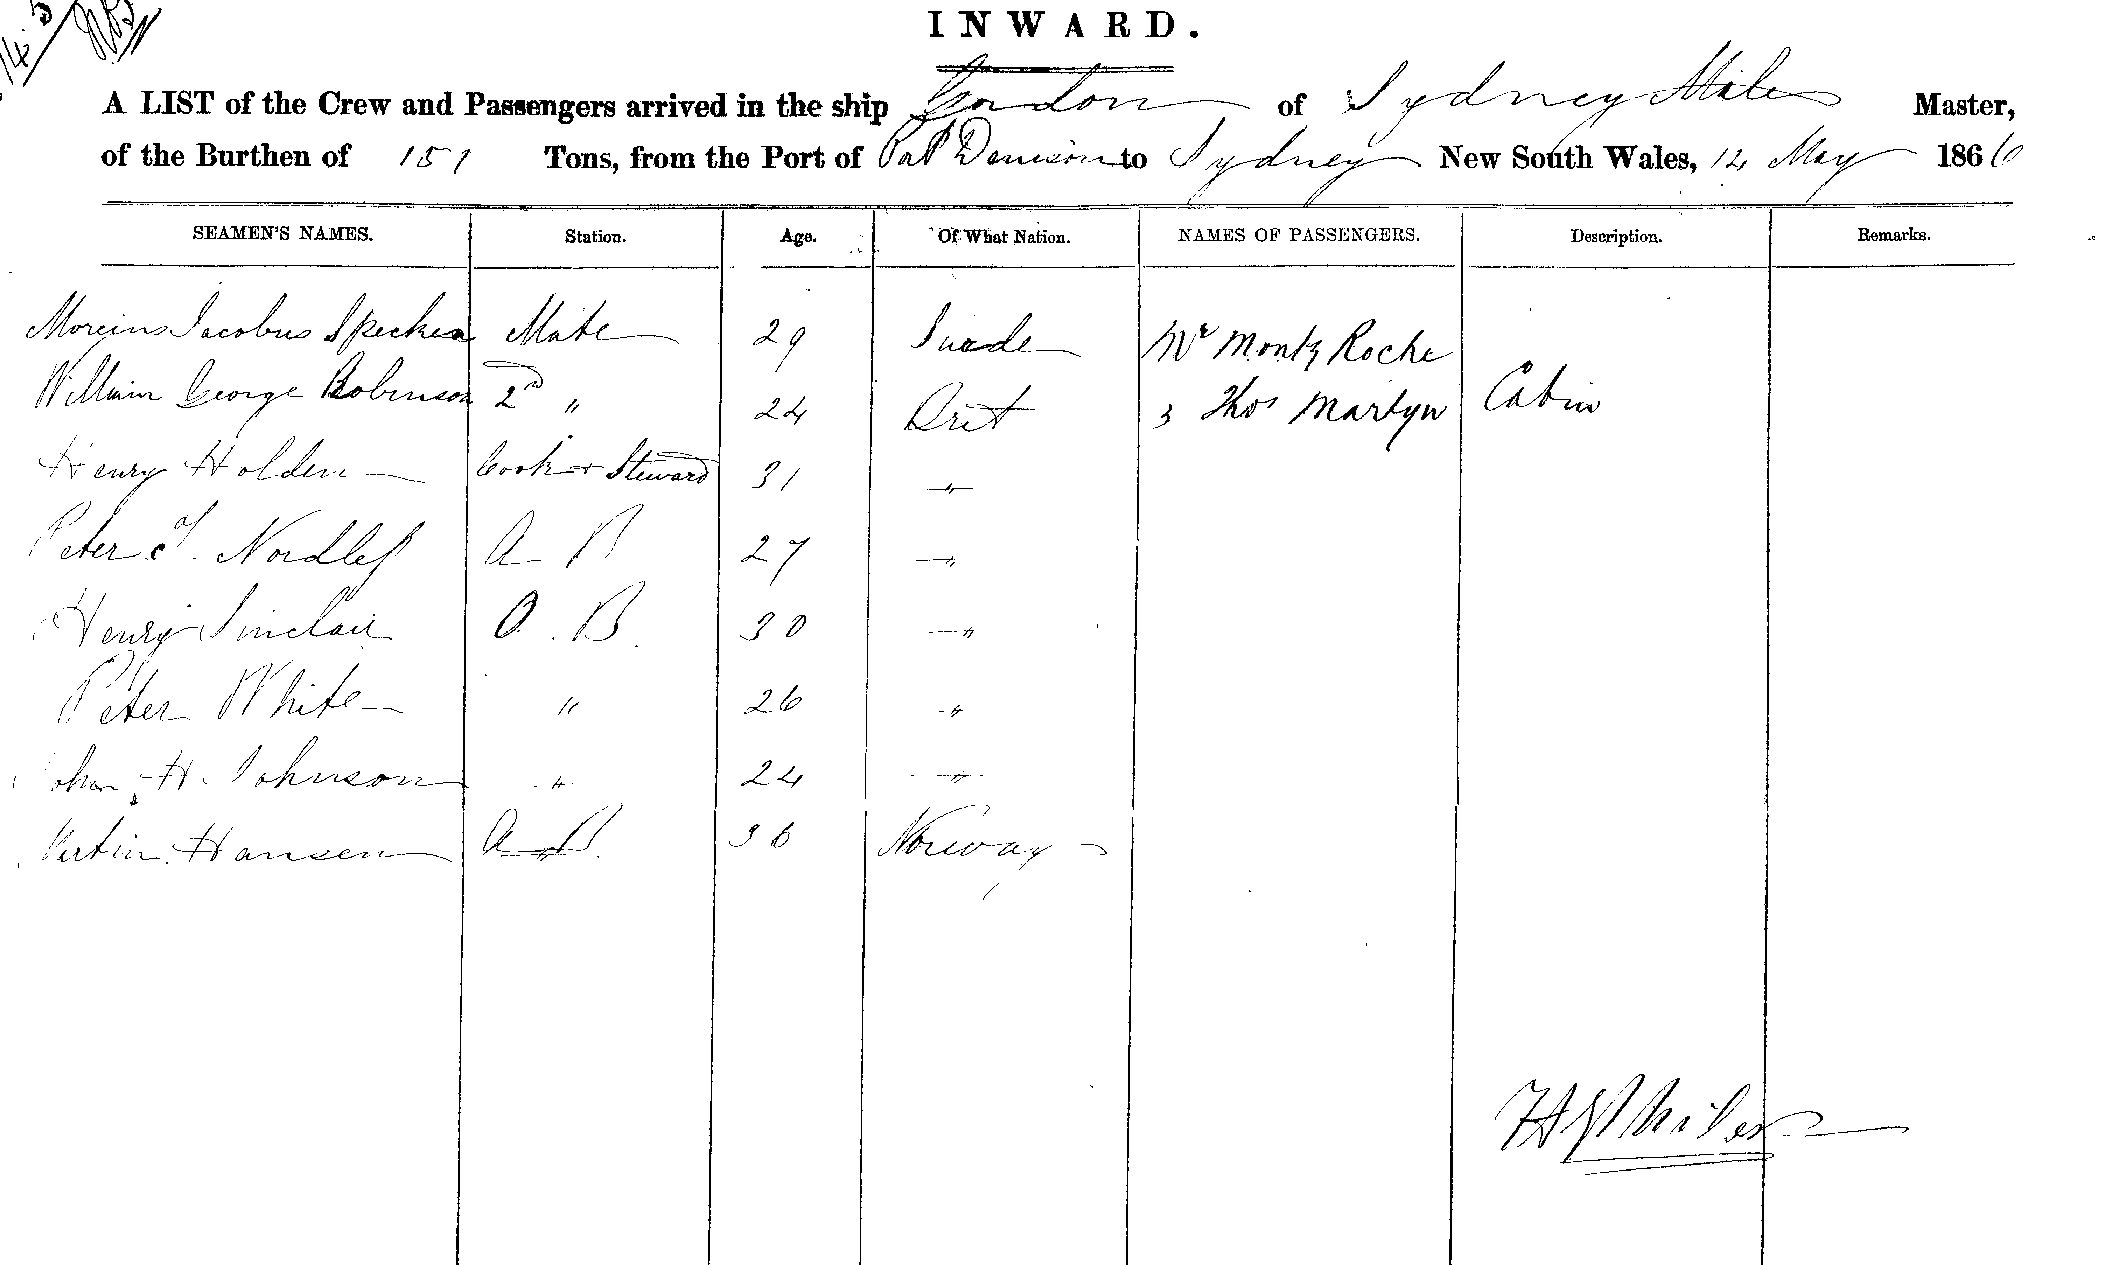 14.5
INWARD.
A LIST of the Crew and Passengers arrived in the ship Gordon of Sydney Miles Master,
of the Burthen of 151 Tons, from the Port of Port Denison to Sydney New South Wales, 12 May 1866
SEAMEN'S NAMES. Station. Age. Of What Nation. NAMES OF PASSENGERS. Description. Remarks.
Jacobus Mate 29 Suede Mr Montz Roche
William George Robinson 2nd " 24 Brit " Thos Martyn Cabin
Henry Holden Cook & Steward 31 "
Peter Nordless A B 27 "
Henry Sinclair O. B. 30 "
Peter White " 26 "
John H. Johnson " 24 "
Hansen A B. 36 Norway
Miles